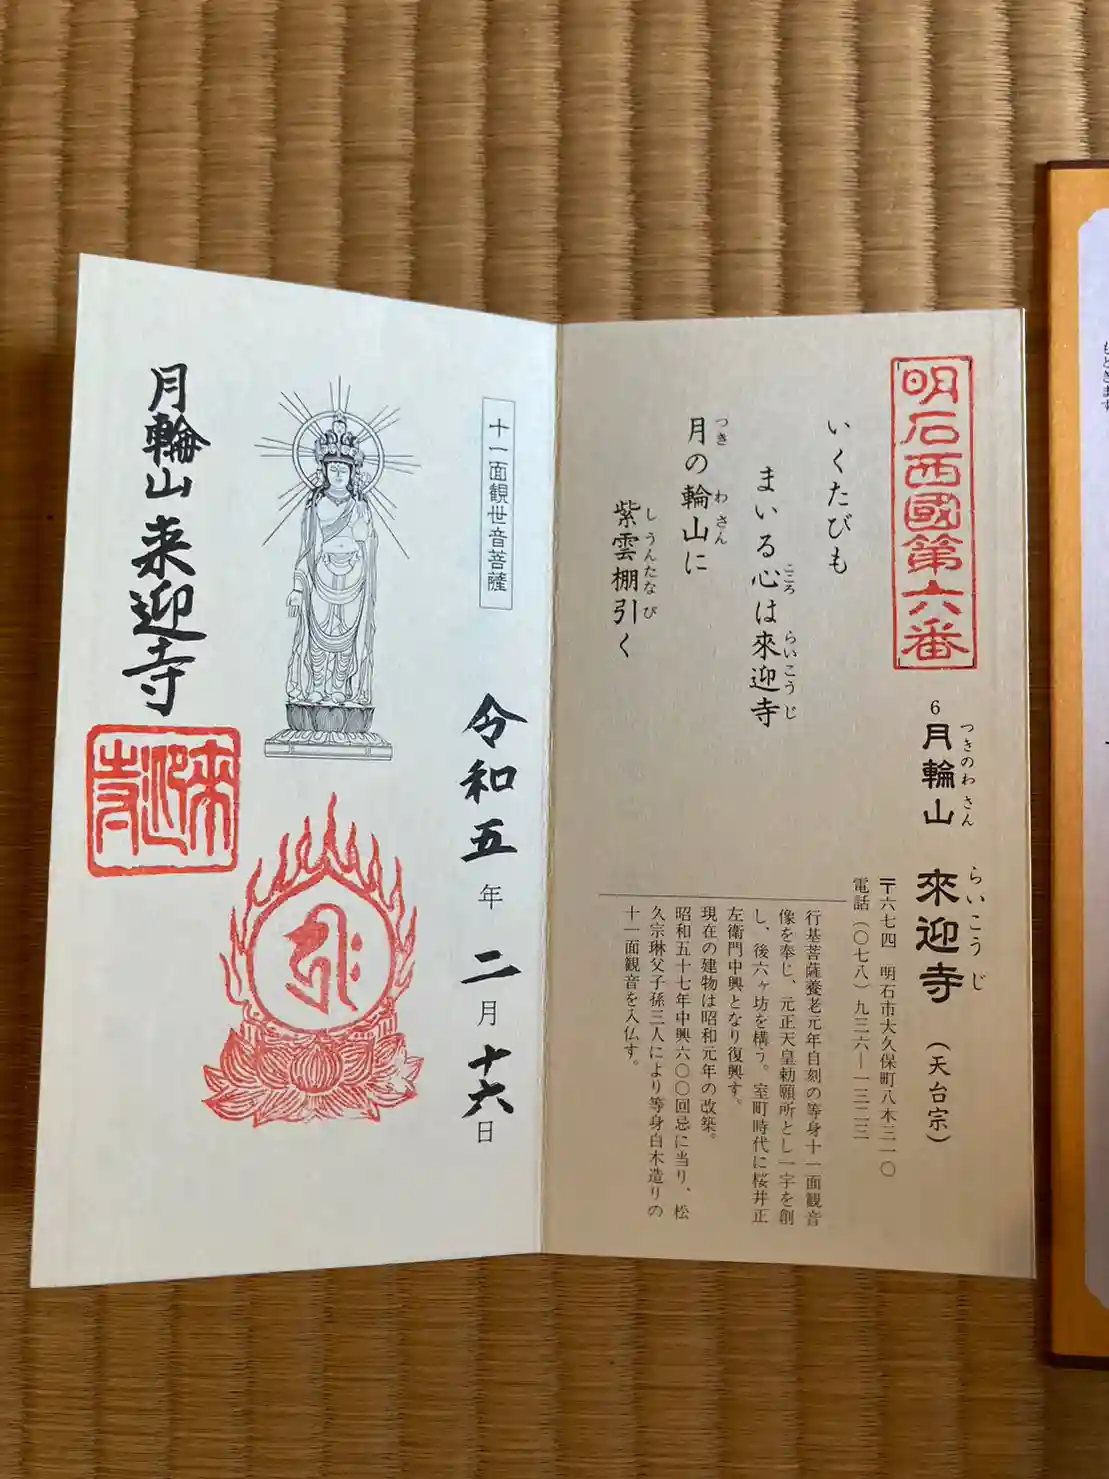 明石西國第六番
6 月輪山 來迎寺 (天台宗)
つきのわ さん
らいこう じ
〒六七四 明石市大久保町八木三一〇
電話(〇七八)九三六―一三二三
いくたびも
まいる心は來迎寺
こころ
らいこう じ
月の輪山に
つき
わ さん
紫雲棚引く
しうんたな び
行基菩薩養老元年自刻の等身十一面観音
像を奉じ、元正天皇勅願所とし一宇を創
し、後六ヶ坊を構う。室町時代に桜井正
左衛門中興となり復興す。
現在の建物は昭和元年の改築。
昭和五十七年中興六〇〇回忌に当り、松
久宗琳父子孫三人により等身白木造りの
十一面観音を入仏す。
十一面観世音菩薩
令和五年 二月十六日
月輪山 来迎寺
來迎寺